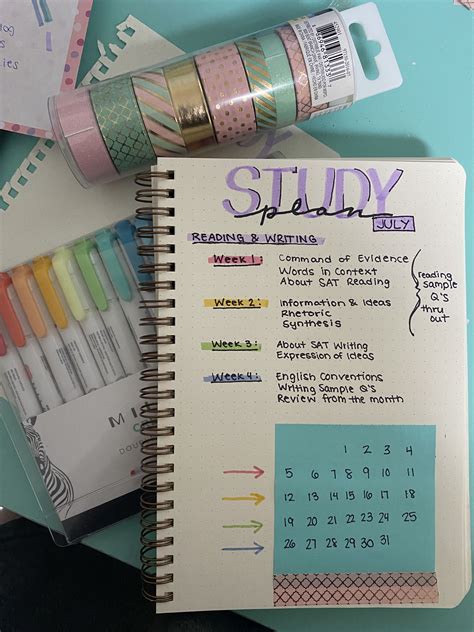 STUDY
plan
JULY
READING & WRITING
Week 1: Command of Evidence
Words in Context
About SAT Reading
reading
sample
Q's
thru
out
Week 2: Information & Ideas
Rhetoric
Synthesis
Week 3: About SAT Writing
Expression of Ideas
Week 4: English Conventions
Writing Sample Q's
Review from the month
1 2 3 4
5 6 7 8 9 10 11
12 13 14 15 16 17 18
19 20 21 22 23 24 25
26 27 28 29 30 31